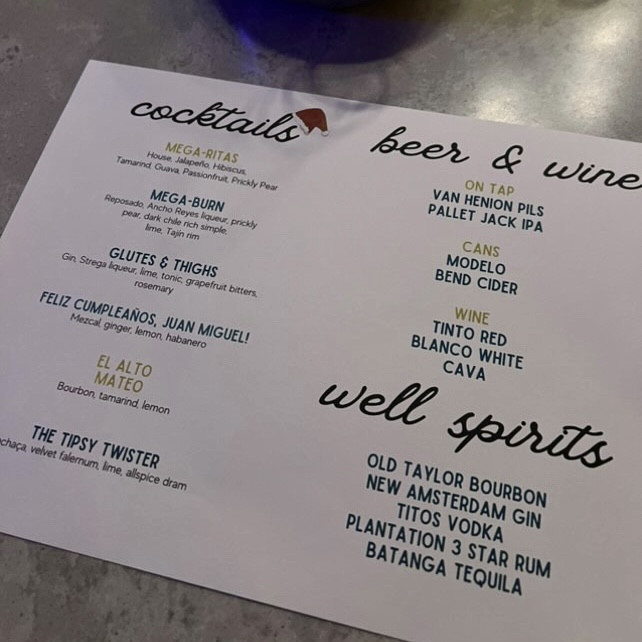 cocktails
MEGA-RITAS
House, Jalapeño, Hibiscus,
Tamarind, Guava, Passionfruit, Prickly Pear
MEGA-BURN
Reposado, Ancho Reyes liqueur, prickly
pear, dark chile rich simple,
lime, Tajin rim
GLUTES & THIGHS
Gin, Strega liqueur, lime, tonic, grapefruit bitters,
rosemary
FELIZ CUMPLEAÑOS, JUAN MIGUEL!
Mezcal, ginger, lemon, habanero
EL ALTO
MATEO
Bourbon, tamarind, lemon
THE TIPSY TWISTER
chaça, velvet falernum, lime, allspice dram
beer & wine
ON TAP
VAN HENION PILS
PALLET JACK IPA
CANS
MODELO
BEND CIDER
WINE
TINTO RED
BLANCO WHITE
CAVA
well spirits
OLD TAYLOR BOURBON
NEW AMSTERDAM GIN
TITOS VODKA
PLANTATION 3 STAR RUM
BATANGA TEQUILA